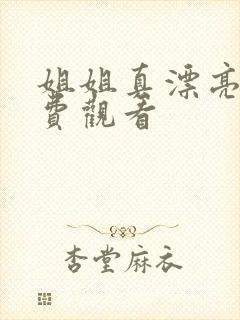 姐姐真漂亮
費觀看
杏堂麻衣